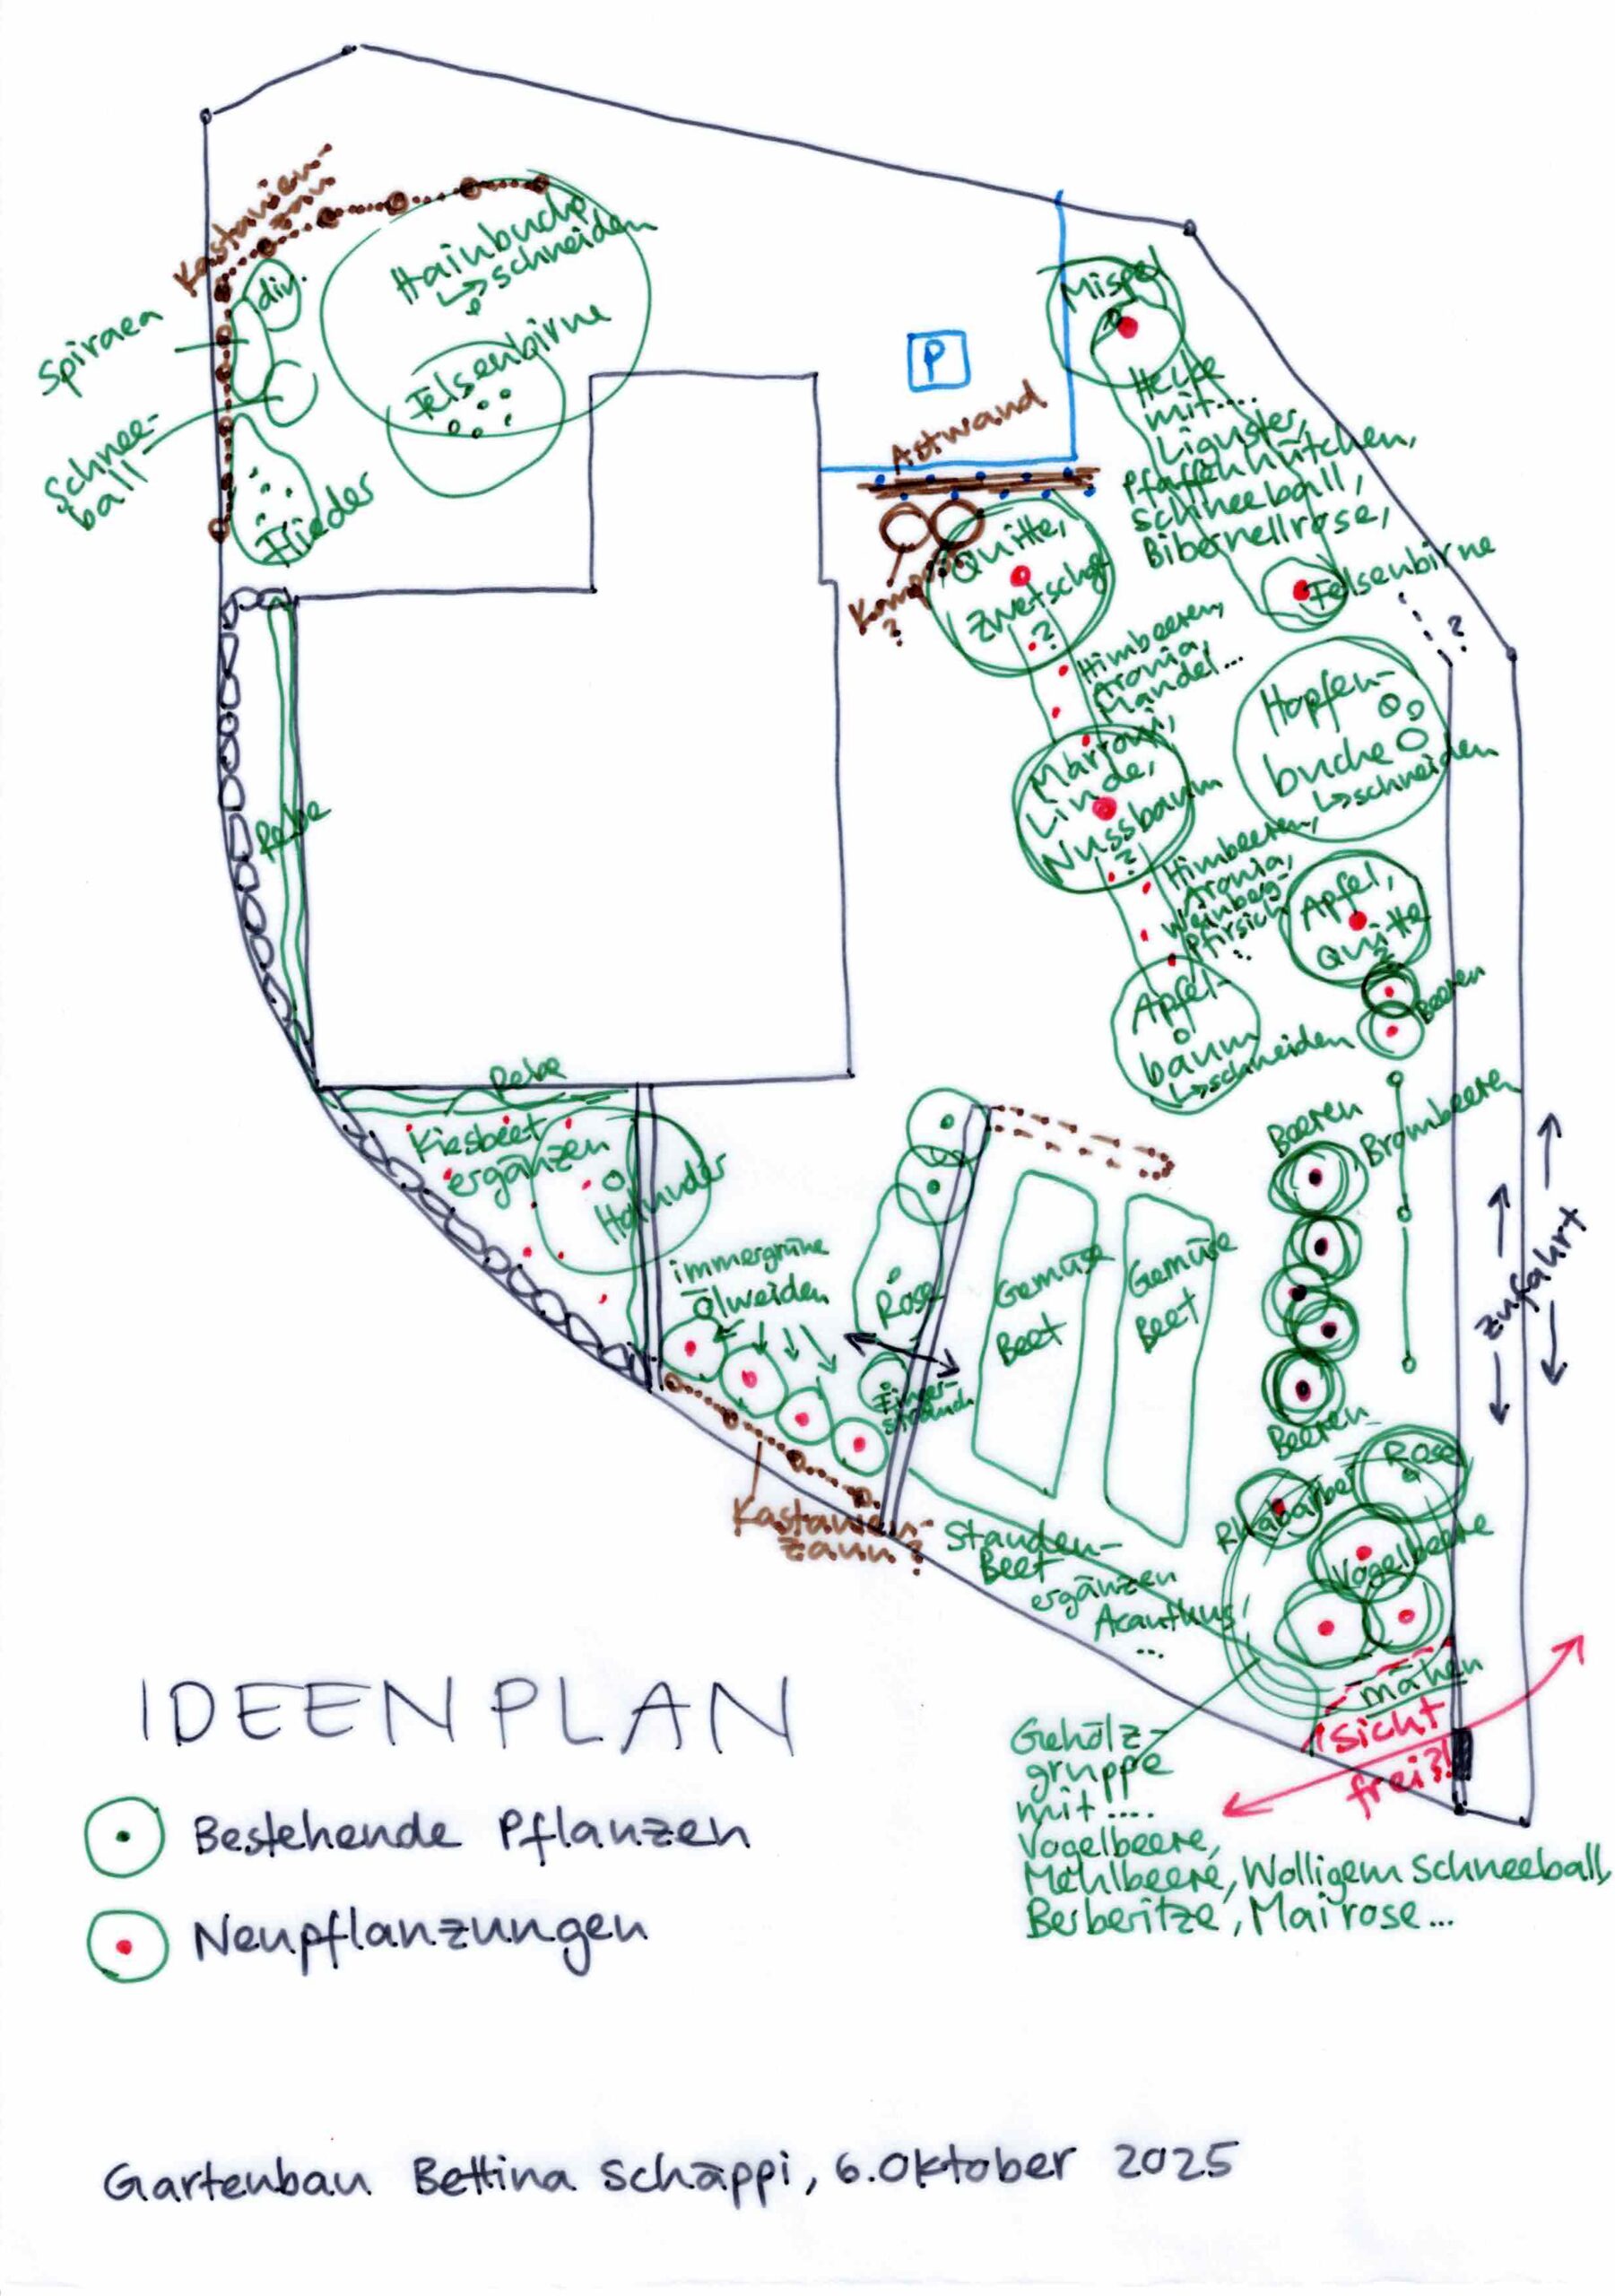 Kastanien-
zaun
div.
Hainbuche
↳ schneiden
Spiraea
Felsenbirne
Schnee-
ball
Flieder
P
Astwand
Mispel
Hecke
mit....
Liguster,
Pfaffenhütchen,
Schneeball,
Bibernellrose,
Felsenbirne
?
Quitte,
Zwetschge
?
?
Himbeeren,
Aronia,
Mandel...
Hopfen-
buche
↳ schneiden
Marroni,
Linde,
Nussbaum
?
Himbeeren,
Aronia,
Weinberg-
Pfirsich
...
Apfel,
Quitte
?
Beeren
Apfel-
baum
↳ schneiden
Rebe
Rebe
Kiesbeet
ergänzen
Holunder
immergrüne
Ölweiden
Rose
Finger-
strauch
Gemüse
Beet
Gemüse
Beet
Beeren
Brombeeren
Beeren
Zufahrt
Kastanien-
zaun?
Stauden-
Beet
ergänzen
Acanthus
...
Rose
Rhabarber
Vogelbeere
mähen
Sicht
frei?!
Gehölz-
gruppe
mit....
Vogelbeere,
Mehlbeere, Wolligem Schneeball,
Berberitze, Mairose...
IDEENPLAN
Bestehende Pflanzen
Neupflanzungen
Gartenbau Bettina Schäppi, 6. Oktober 2025